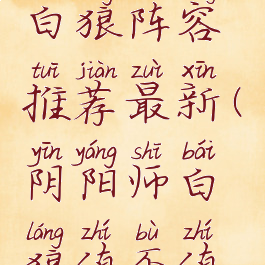 白狼阵容
tuī jiàn zuì xīn
推荐最新(
yīn yáng shī bái
阴阳师白
láng zhí bù zhí
狼值不值